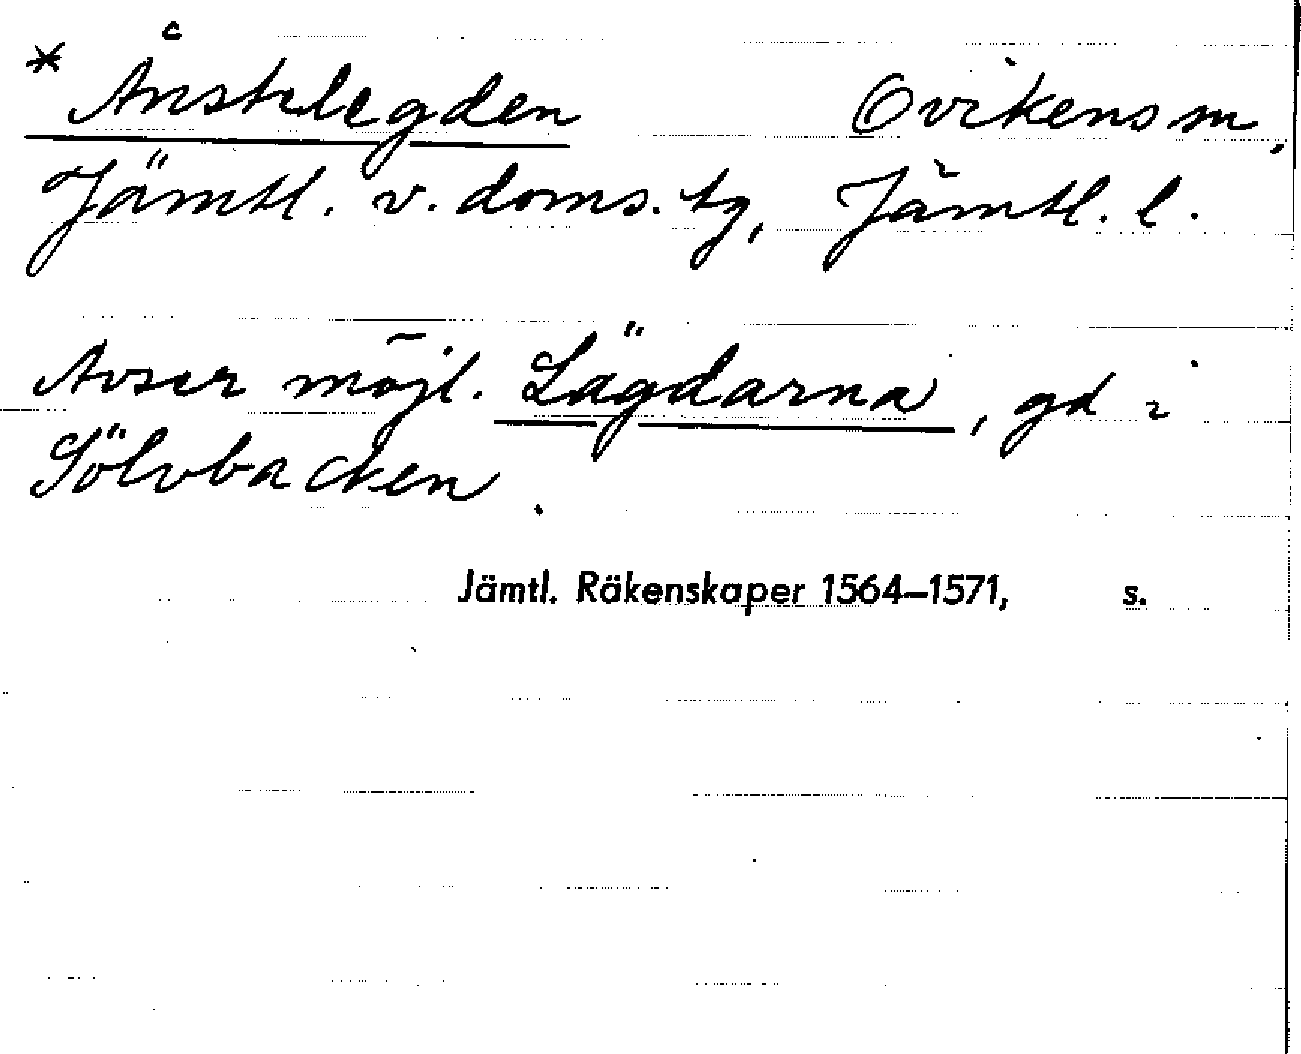 * Ånstelegden Ovikens sn,
Jämtl. v. doms. tg, Jämtl. l.
Avser möjl. Lägdarna, gd i
Sölvbacken.
Jämtl. Räkenskaper 1564–1571, s.